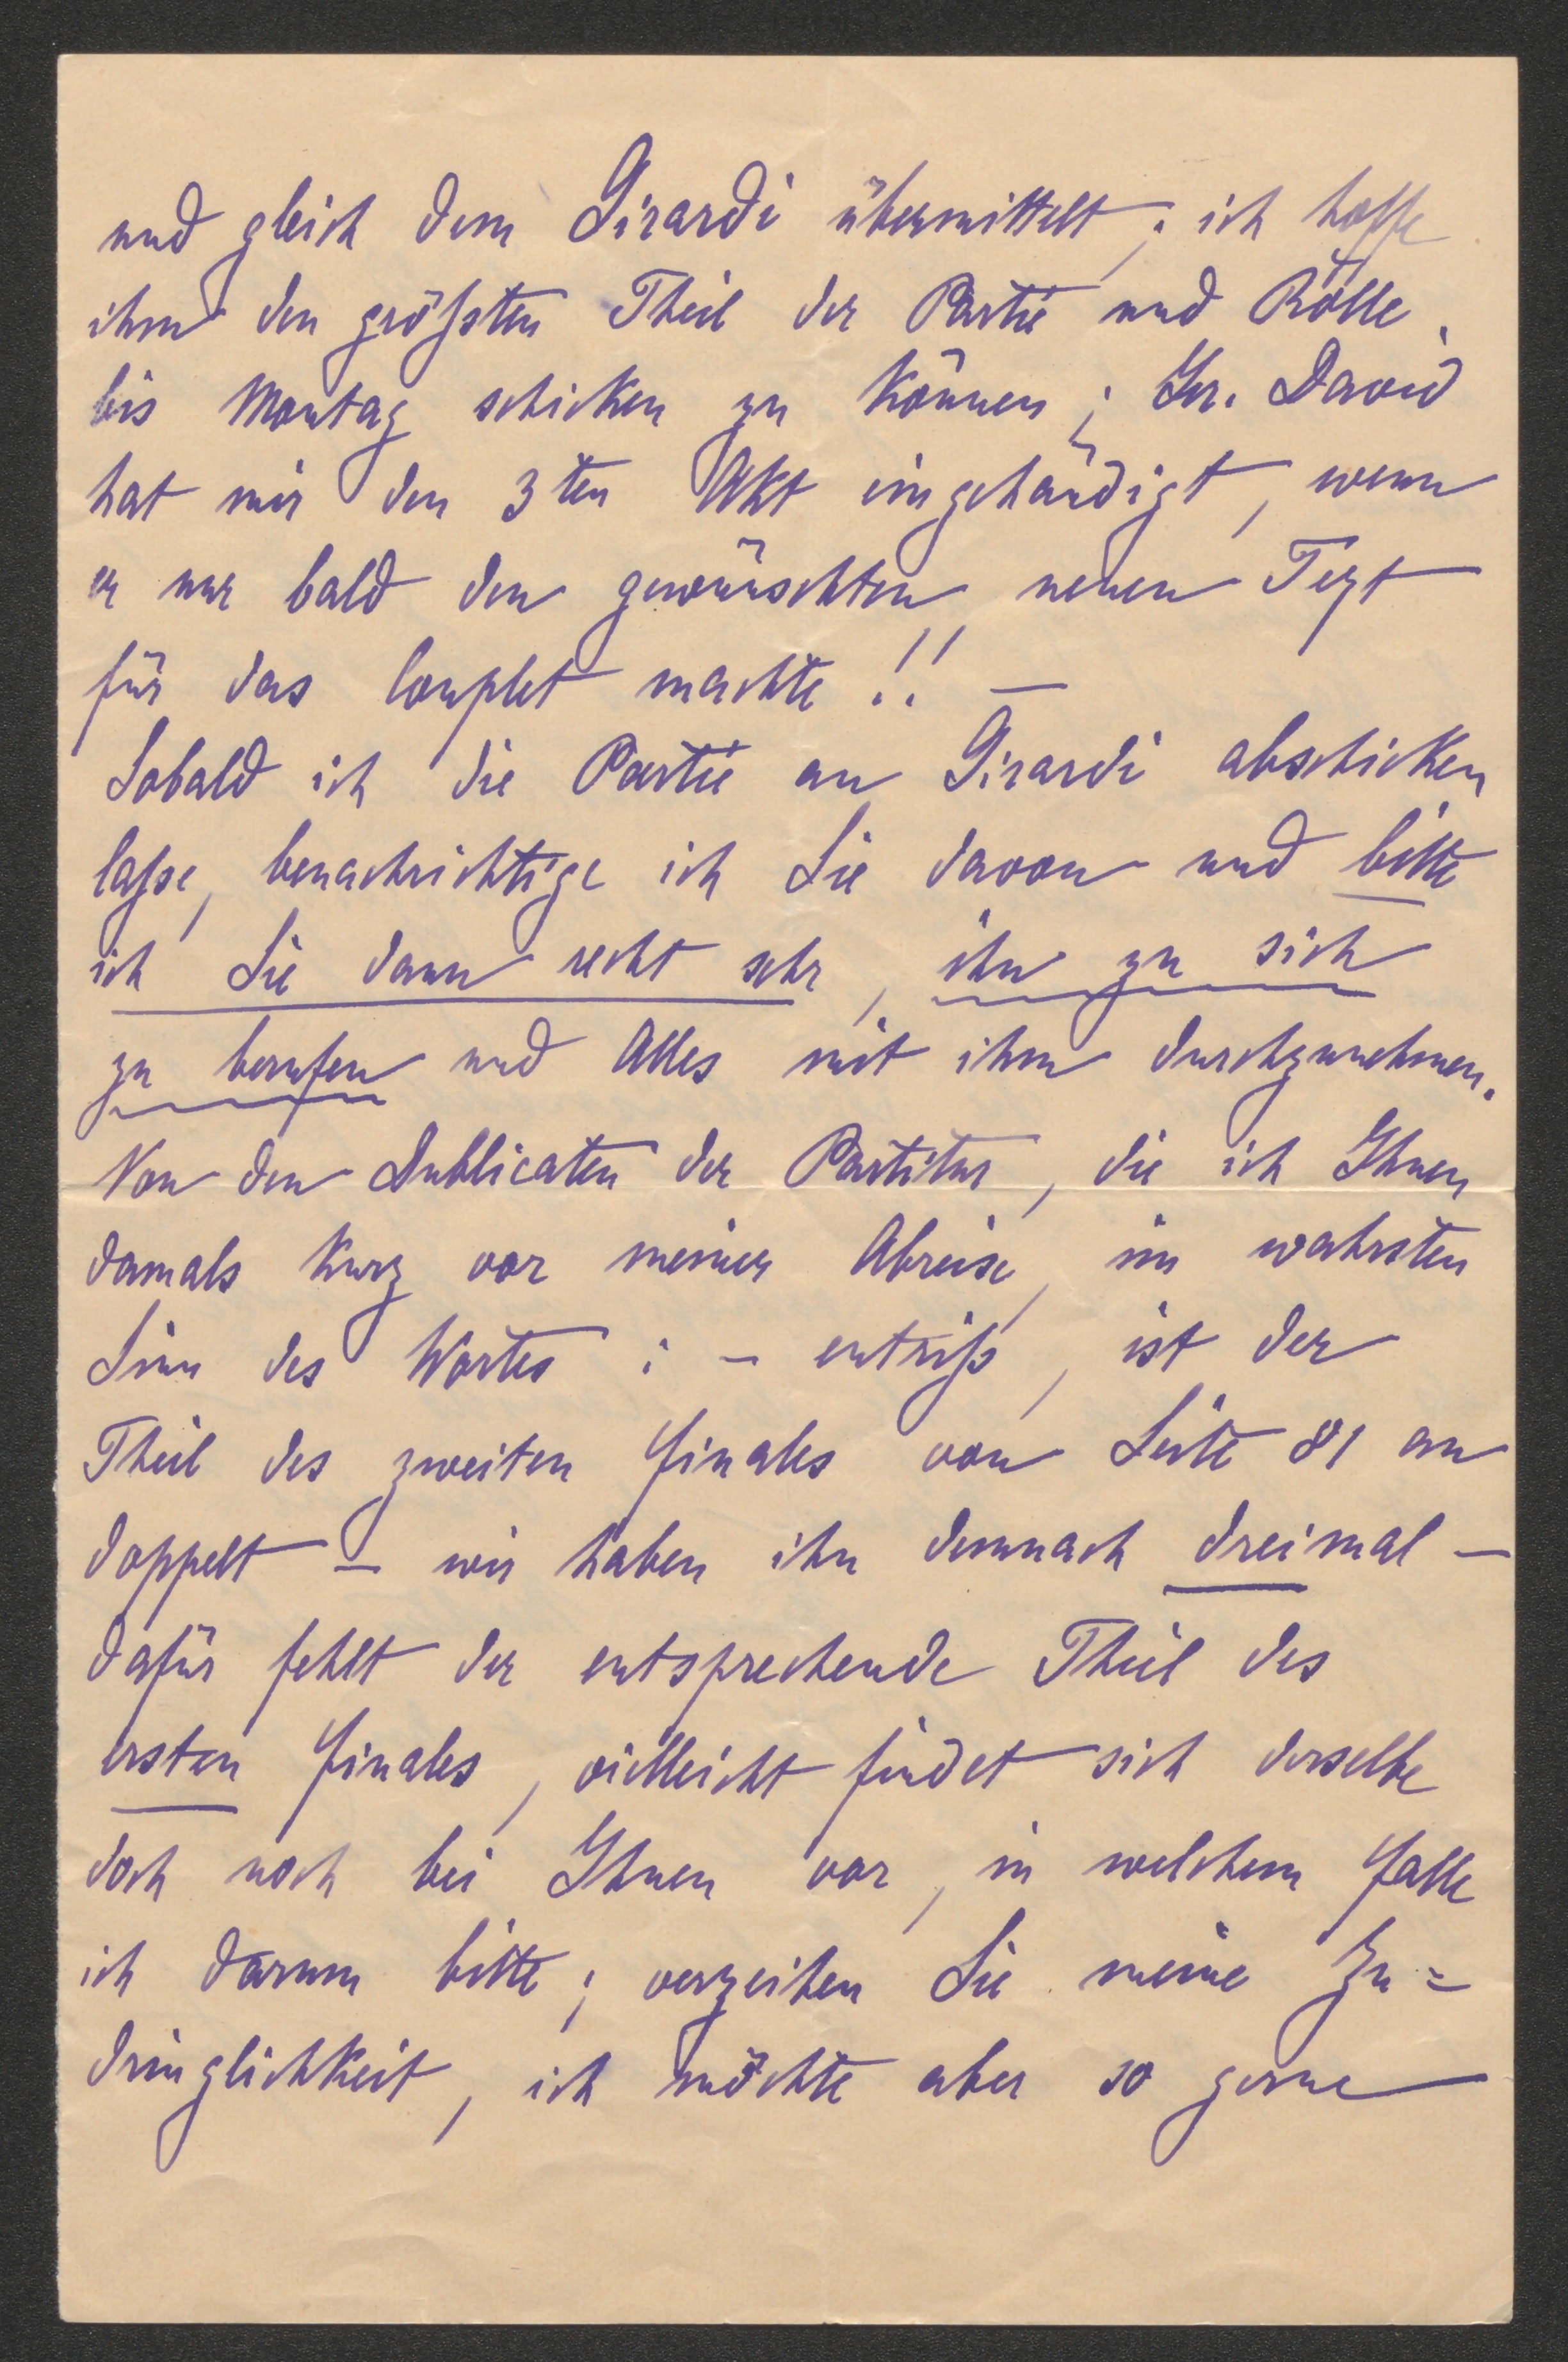 und gleich dem Girardi übermittelt; ich hoffe
ihm den größten Theil der Partie und Rolle
bis Montag schicken zu können; Hr. David
hat mir den 3ten Akt eingehändigt, wenn
er nur bald den gewünschten neuen Text
für das Couplet machte!! —
Sobald ich die Partie an Girardi abschicken
laße, benachrichtige ich Sie davon und bitte
ich Sie dann recht sehr, ihn zu sich
zu berufen und Alles mit ihm durchzunehmen.
Von den Dublicaten der Partitur, die ich Ihnen
damals kurz vor meiner Abreise, im wahrsten
Sinn des Wortes: – entriß, ist der
Theil des zweiten Finales von Seite 81 an
doppelt – wir haben ihn demnach dreimal –
dafür fehlt der entsprechende Theil des
ersten Finales, vielleicht findet sich derselbe
doch noch bei Ihnen vor, in welchem Falle
ich darum bitte; verzeihen Sie meine Zu=
dringlichkeit, ich möchte aber so gerne